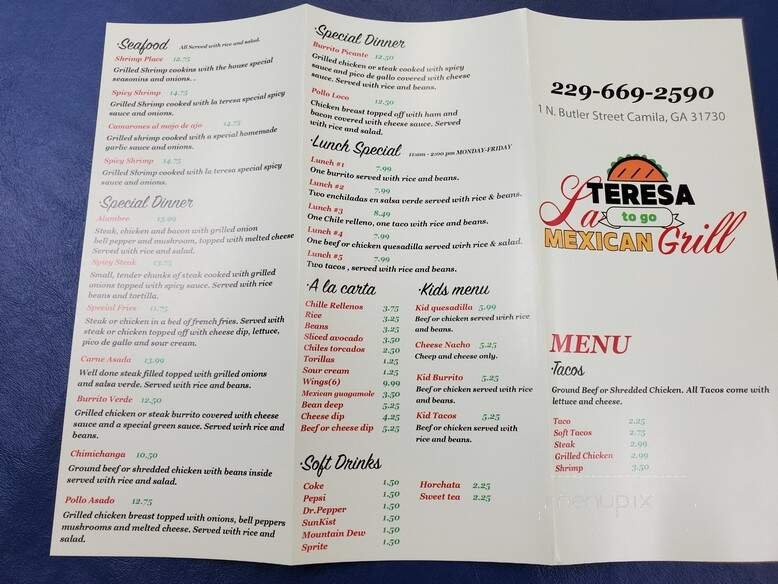 Seafood All Served with rice and salad.
Shrimp Place 12.75
Grilled Shrimp cookins with the house special
seasonins and onions. .
Spicy Shrimp 14.75
Grilled Shrimp cooked with la teresa special spicy
sauce and onions.
Camarones al mojo de ajo 14.75
Grilled shrimp cooked with a special homemade
garlic sauce and onions.
Spicy Shrimp 14.75
Grilled Shrimp cooked with la teresa special spicy
sauce and onions.
Special Dinner
Alambre 13.99
Steak, chicken and bacon with grilled onion
bell pepper and mushroom, topped with melted cheese
Served with rice and salad.
Spicy Steak 13.75
Small, tender chunks of steak cooked with grilled
onions topped with spicy sauce. Served with rice
beans and tortilla.
Special Fries 11.75
Steak or chicken in a bed of french fries. Served with
steak or chicken topped off with cheese dip, lettuce,
pico de gallo and sour cream.
Carne Asada 13.99
Well done steak filled topped with grilled onions
and salsa verde. Served with rice and beans.
Burrito Verde 12.50
Grilled chicken or steak burrito covered with cheese
sauce and a special green sauce. Served wirh rice and
beans.
Chimichanga 10.50
Ground beef or shredded chicken with beans inside
served with rice and salad.
Pollo Asado 12.75
Grilled chicken breast topped with onions, bell peppers
mushrooms and melted cheese. Served with rice and
salad.
Special Dinner
Burrito Picante 12.50
Grilled chicken or steak cooked with spicy
sauce and pico de gallo covered with cheese
sauce. Served with rice and beans.
Pollo Loco 12.50
Chicken breast topped off with ham and
bacon covered with cheese sauce. Served
with rice and salad.
Lunch Special 11:am - 2:00 pm MONDAY-FRIDAY
Lunch #1 7.99
One burrito served with rice and beans.
Lunch #2 7.99
Two enchiladas en salsa verde served with rice & beans.
Lunch #3 8.49
One Chile relleno, one taco with rice and beans.
Lunch #4 7.99
One beef or chicken quesadilla served wirh rice & salad.
Lunch #5 7.99
Two tacos , served with rice and beans.
A la carta
Chille Rellenos 3.75
Rice 3.25
Beans 3.25
Sliced avocado 3.50
Chiles torcados 2.50
Torillas 1.25
Sour cream 1.25
Wings(6) 9.99
Mexican guagamole 3.50
Bean deep 5.25
Cheese dip 4.25
Beef or cheese dip 5.25
Kids menu
Kid quesadilla 5.99
Beef or chicken served wirh rice
and beans.
Cheese Nacho 5.25
Cheep and cheese only.
Kid Burrito 5.25
Beef or chicken served with rice
and beans.
Kid Tacos 5.25
Beef or chicken served with
rice and beans.
Soft Drinks
Coke 1.50
Pepsi 1.50
Dr.Pepper 1.50
SunKist 1.50
Mountain Dew 1.50
Sprite 1.50
Horchata 2.25
Sweet tea 2.25
229-669-2590
1 N. Butler Street Camila, GA 31730
La TERESA
to go
MEXICAN Grill
MENU
Tacos
Ground Beef or Shredded Chicken. All Tacos come with
lettuce and cheese.
Taco 2.25
Soft Tacos 2.75
Steak 2.99
Grilled Chicken 2.99
Shrimp 3.50
menupix